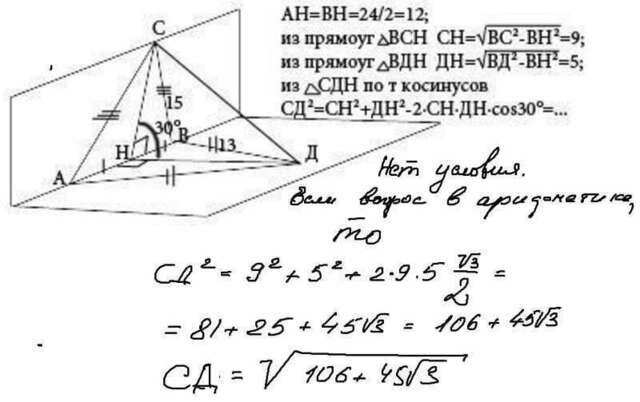 АН=ВН=24/2=12;
из прямоуг △ВСН СН=√ВС²-ВН²=9;
из прямоуг △ВДН ДН=√ВД²-ВН²=5;
из △СДН по т косинусов
СД²=СН²+ДН²-2·СН·ДН·cos30°=...
С
15
30°
В
Н
13
Д
А
Нет условия.
Если вопрос в арифметике,
то
СД² = 9² + 5² + 2·9·5 √3/2 =
= 81 + 25 + 45√3 = 106 + 45√3
СД = √106 + 45√3